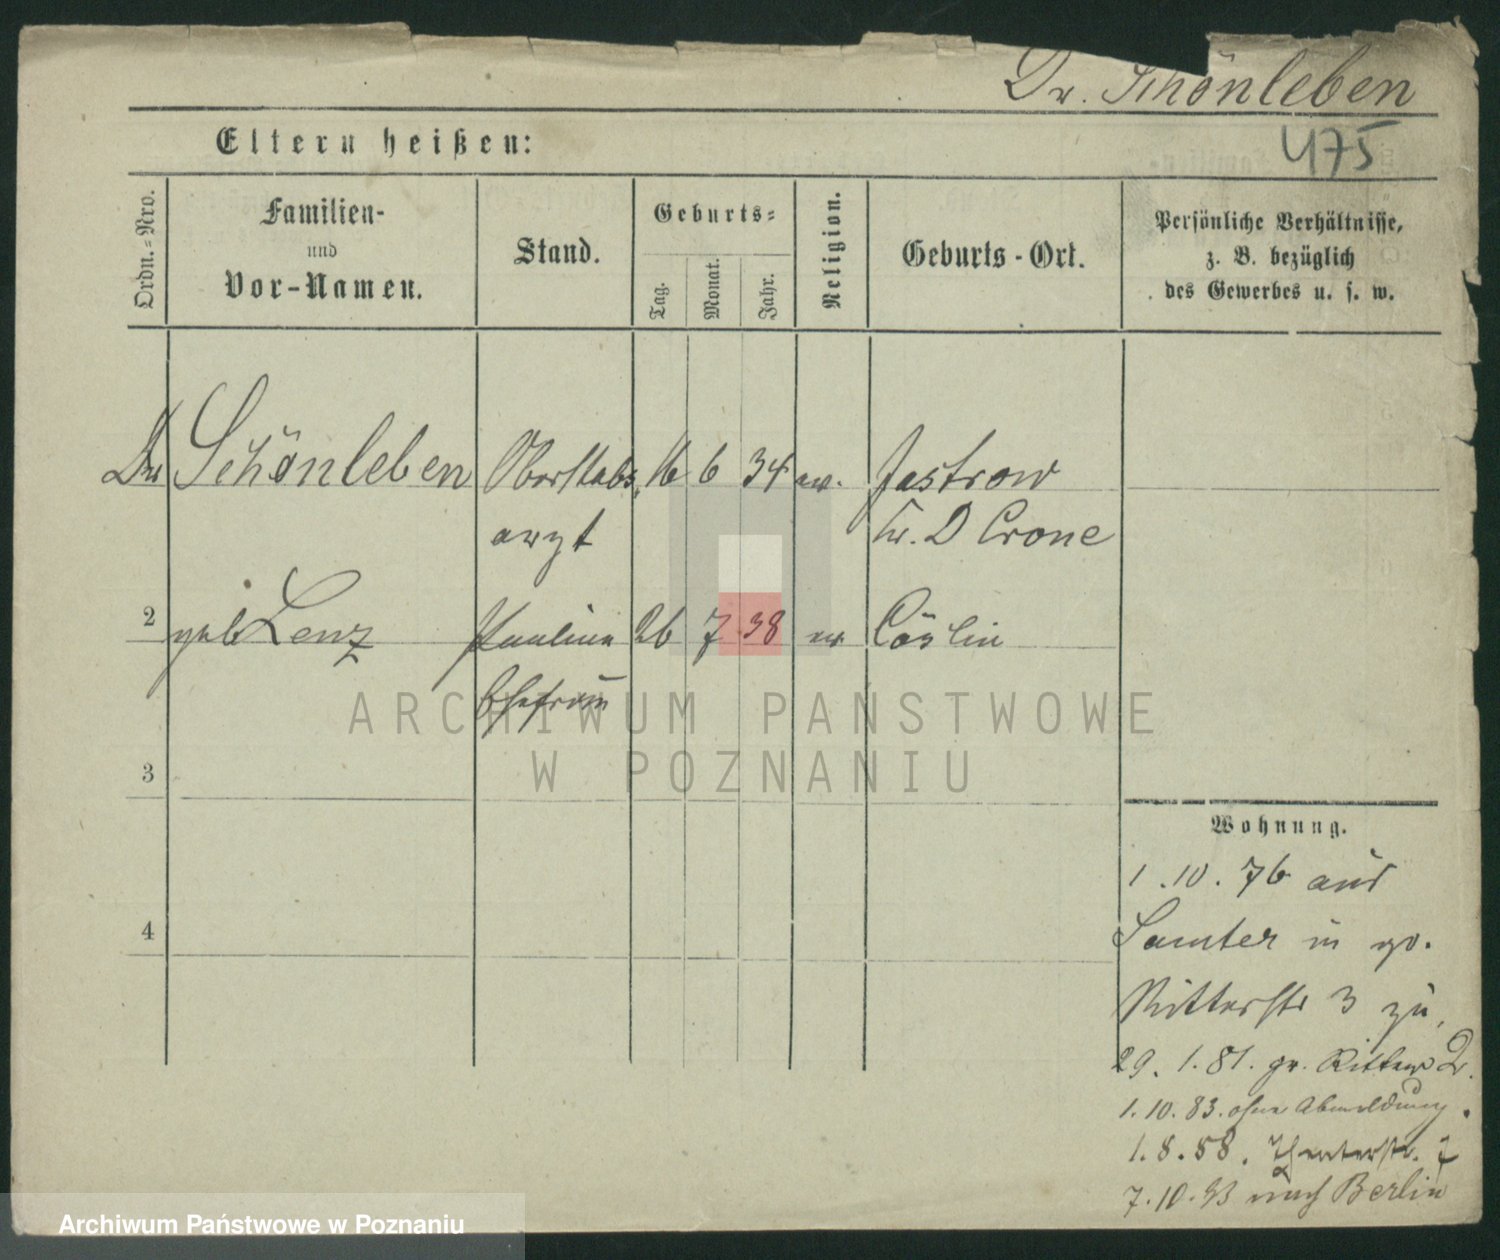 Dr. Schönleben
475
Eltern heißen:
Ordn.=Nro.
Familien-
und
Vor-Namen.
Stand.
Geburts=
Tag.
Monat.
Jahr.
Religion.
Geburts-Ort.
Persönliche Verhältnisse,
z. B. bezüglich
des Gewerbes u. s. w.
Dr Schönleben Oberstabs 16 6 34 ev. Jastrow
arzt Kr. D Crone
2 geb Lenz Pauline 26 7 38 ev Cöslin
Ehefrau
3
4
Wohnung.
1.10.76 aus
Samter in gr.
Ritterstr 3 zu,
29.1.81. gr. Ritter 2.
1.10.83. ohne Abmeldung.
1.8.88. Theaterstr.
7.10.93 nach Berlin
ARCHIWUM PAŃSTWOWE
W POZNANIU
Archiwum Państwowe w Poznaniu